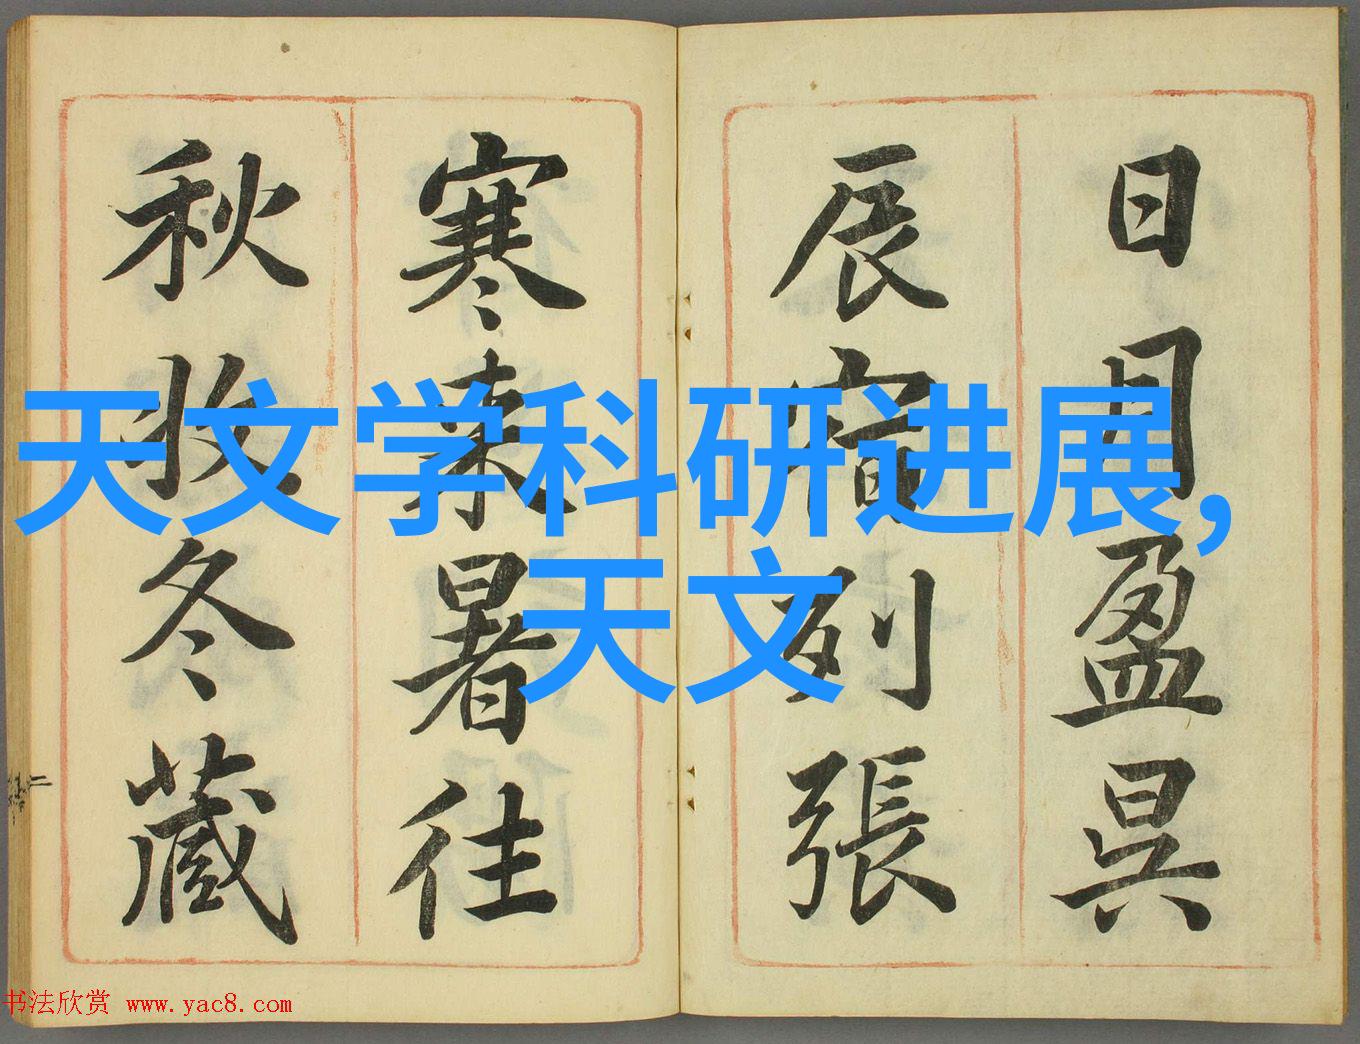 日月盈昃
辰宿列張
寒來暑往
秋收冬藏
天文学科研进展,
天文
二
书法欣赏 www.yac8.com